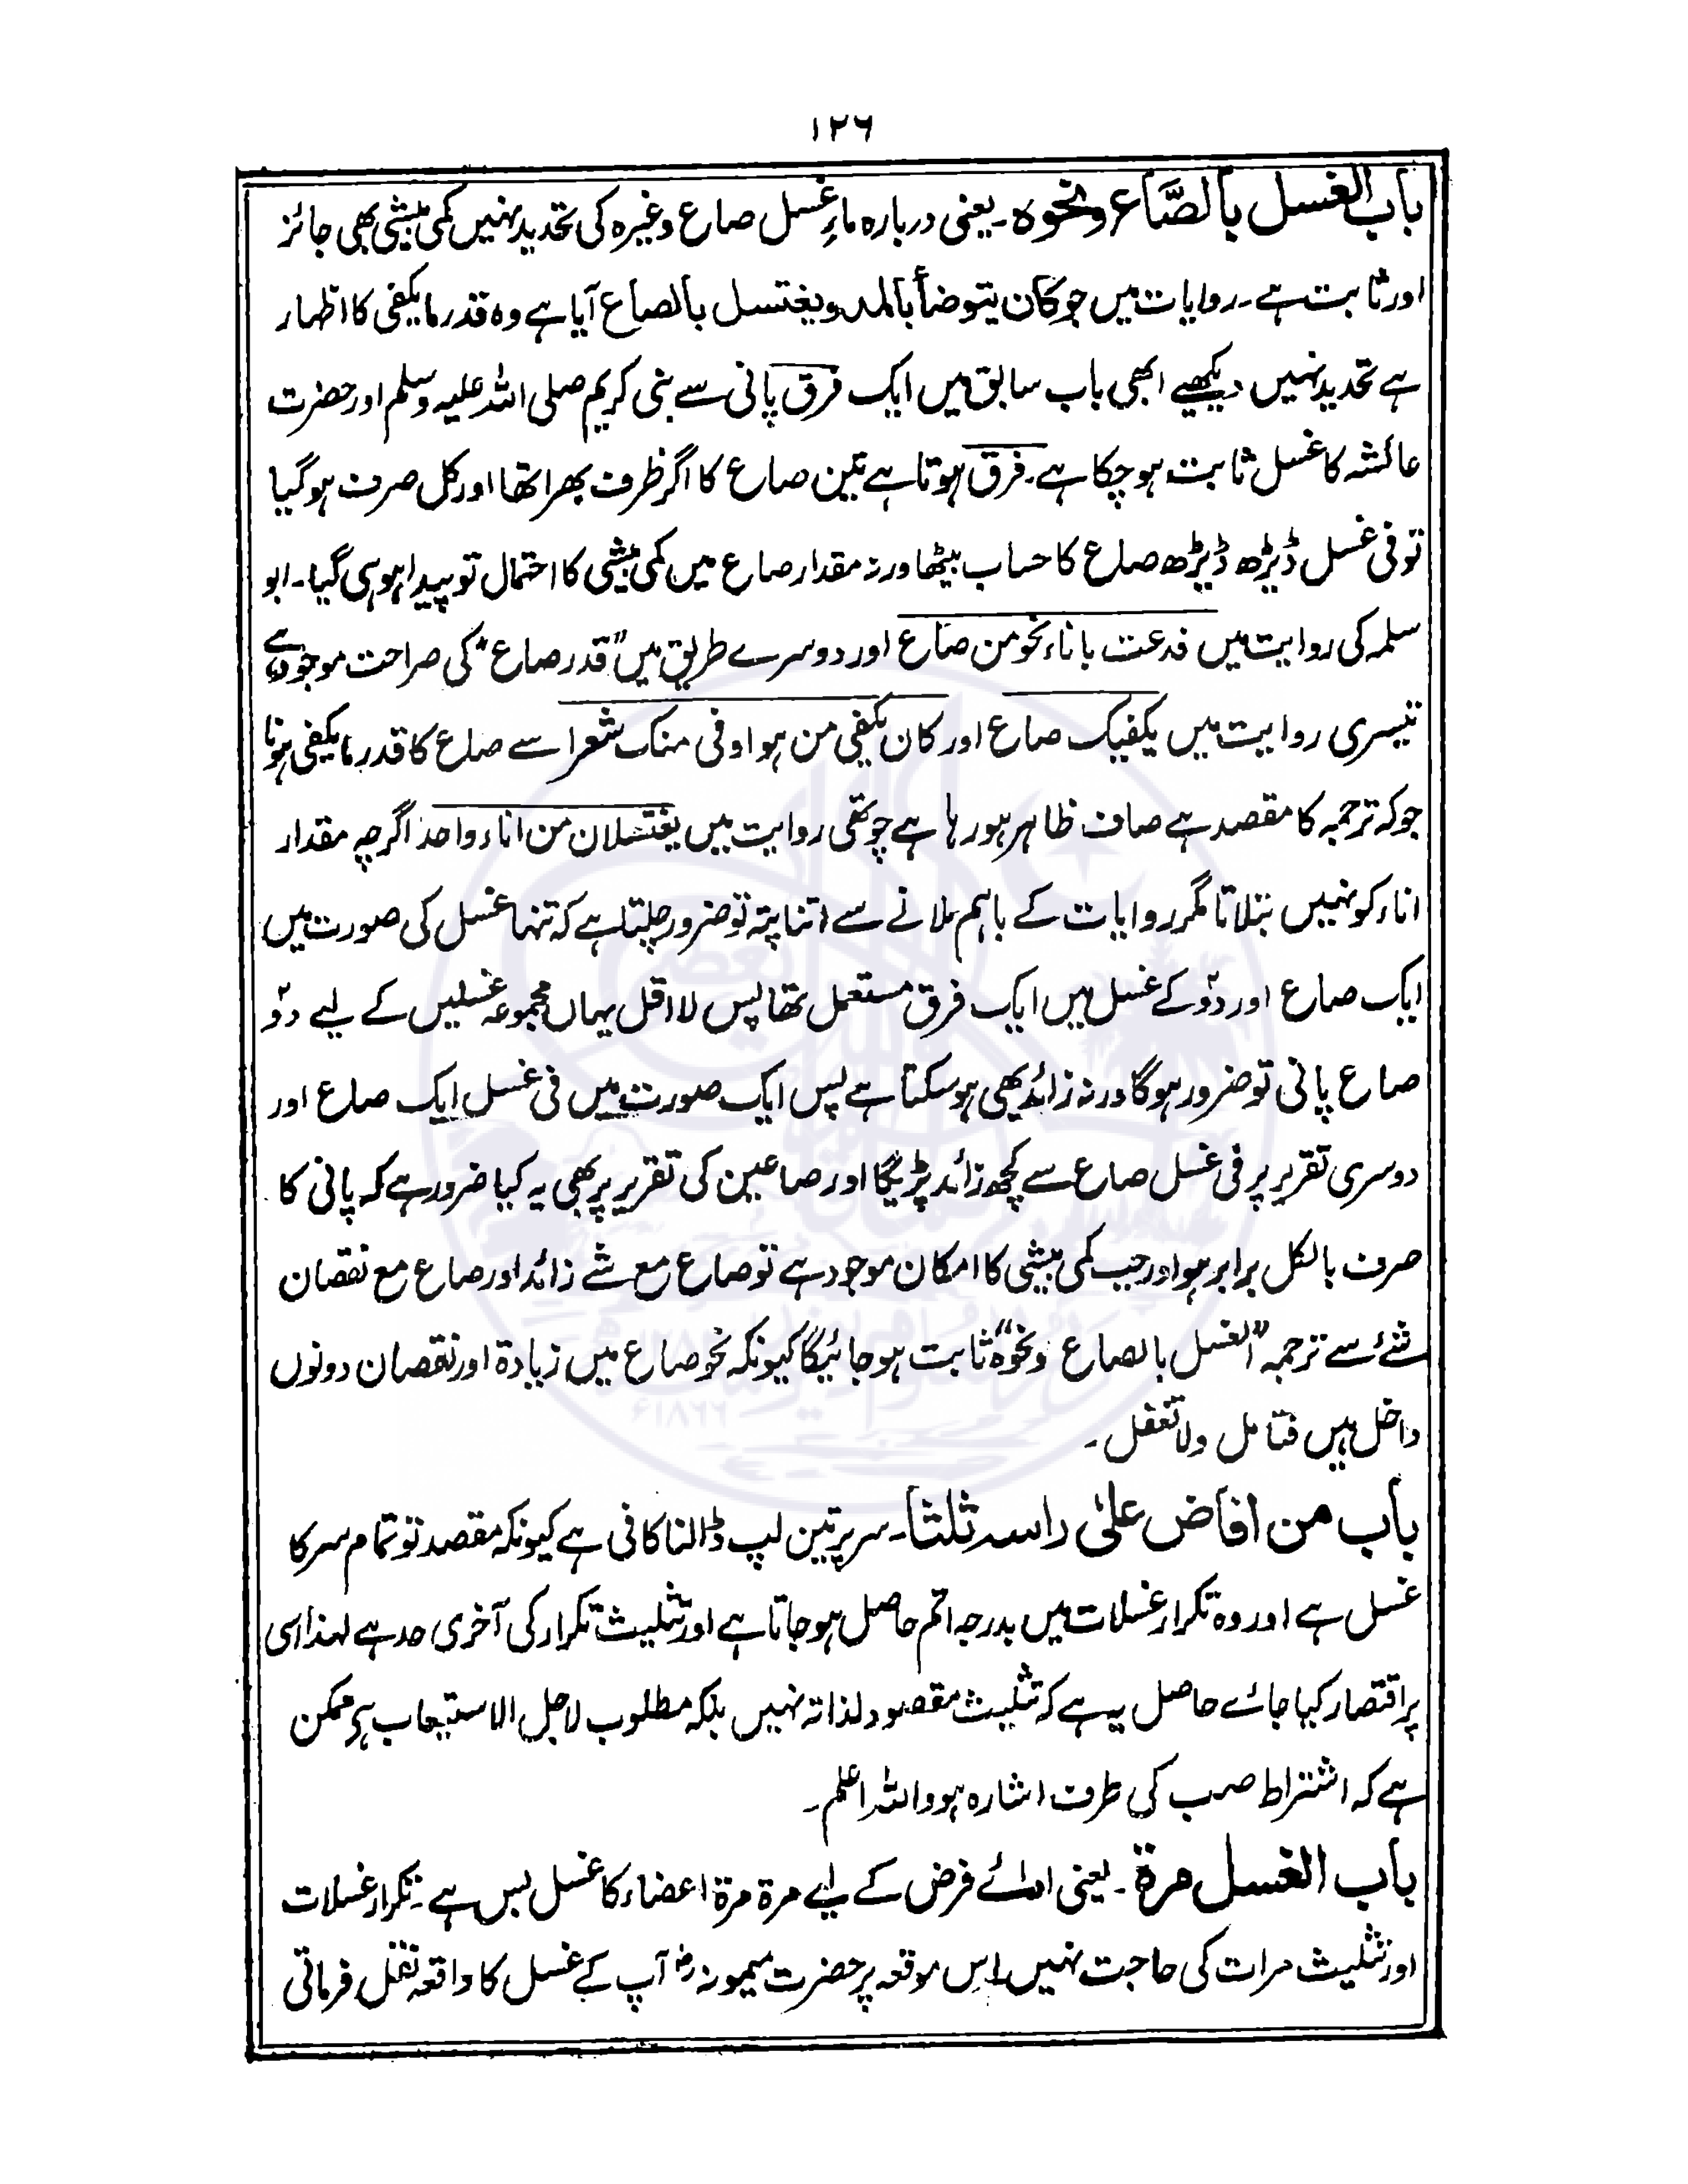 ۱۲۶
باب الغسل بالصَّاع ونحوہ۔ یعنی دربارہ ماءِ غسل صاع وغیرہ کی تحدید نہیں کمی بیشی بھی جائز
اور ثابت ہے۔ روایات میں جو کان یتوضأ بالمد ویغتسل بالصاع آیا ہے وہ قدر مایکفی کا اظہار
ہے تحدید نہیں دیکھیے ابھی باب سابق میں ایک فرق پانی سے نبی کریم صلی اللہ علیہ وسلم اور حضرت
عائشہ کا غسل ثابت ہو چکا ہے۔ فرق ہوتا ہے تین صاع کا اگر ظرف بھرا تھا اور کل صرف ہو گیا
تو فی غسل ڈیڑھ ڈیڑھ صاع کا حساب بیٹھا ورنہ مقدار صاع میں کمی بیشی کا احتمال تو پیدا ہو ہی گیا۔ ابو
سلمہ کی روایت میں فدعت باناء نحو من صاع اور دوسرے طریق میں "قدر صاع" کی صراحت موجود ہے
تیسری روایت میں یکفیک صاع اور کان یکفی من ہو اوفی منک شعرا سے صاع کا قدر مایکفی ہونا
جو کہ ترجمہ کا مقصد ہے صاف ظاہر ہو رہا ہے چوتھی روایت میں یغتسلان من اناء واحد اگرچہ مقدار
اناء کو نہیں بتلاتا مگر روایات کے باہم ملانے سے اتنا پتہ تو ضرور چلتا ہے کہ تنہا غسل کی صورت میں
ایک صاع اور دو کے غسل میں ایک فرق مستعمل تھا پس لا اقل یہاں مجموعہ غسلیں کے لیے دو
صاع پانی تو ضرور ہوگا ورنہ زائد بھی ہو سکتا ہے پس ایک صورت میں فی غسل ایک صاع اور
دوسری تقریر پر فی غسل صاع سے کچھ زائد پڑیگا اور صاعین کی تقریر پر بھی یہ کیا ضرور ہے کہ پانی کا
صرف بالکل برابر ہو اور جب کمی بیشی کا امکان موجود ہے تو صاع مع شے زائد اور صاع مع نقصان
شئے سے ترجمہ "الغسل بالصاع ونحوہ" ثابت ہو جائیگا کیونکہ نحو صاع میں زیادۃ اور نقصان دونوں
داخل ہیں فتامل ولا تغفل۔
باب من افاض علیٰ راسہ ثلثا۔ سر پر تین لپ ڈالنا کافی ہے کیونکہ مقصد تو تمام سر کا
غسل ہے اور وہ تکرار غسلات میں بدرجہ اتم حاصل ہو جاتا ہے اور تثلیث تکرار کی آخری حد ہے لہٰذا اسی
پر اقتصار کیا جائے حاصل یہ ہے کہ تثلیث مقصود لذاتہ نہیں بلکہ مطلوب لاجل الاستیعاب ہے ممکن
ہے کہ اشتراط صب کی طرف اشارہ ہو واللہ اعلم۔
باب الغسل مرۃ۔ یعنی ادائے فرض کے لیے مرۃ مرۃ اعضاء کا غسل بس ہے۔ تکرار غسلات
اور تثلیث مرات کی حاجت نہیں اِس موقعہ پر حضرت میمونہ رض آپ کے غسل کا واقعہ نقل فرماتی